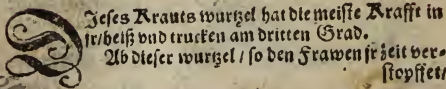 DJeses Krauts wurtzel hat die meiste Krafft in
jr/heiß vnd trucken am dritten Grad.
Ab dieser wurtzel / so den Frawen jr zeit ver-
stopffet/